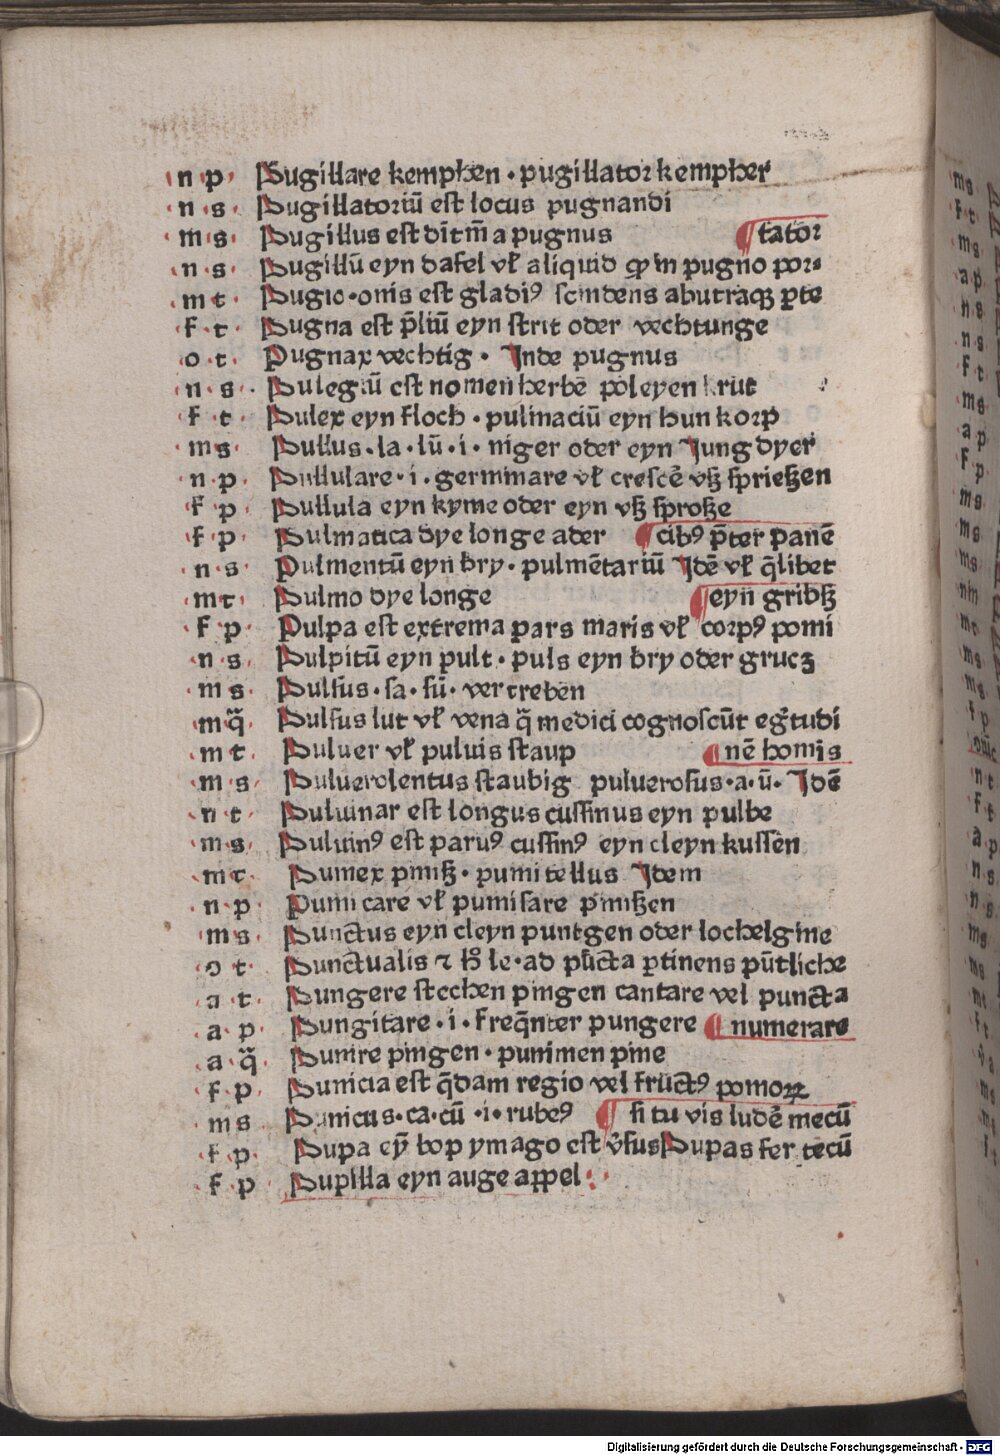 n p Pugillare kemphen · pugillator kempher
n s Pugillatoriū est locus pugnandi
m s Pugillus est dīt'm̄ a pugnus ¶ tator
n s Pugillū eyn dafel vł aliquid qͥ in pugno por⸗
m t Pugio · onis est gladiꝰ scindens abutraqꝫ ꝑte
f t Pugna est p̄liū eyn strit oder vechtunge
o t Pugnax vechtig · Inde pugnus
n s Pulegiū est nomen herbe poleyen krut
f t Pulex eyn floch · pulinaciū eyn hun korp
m s Pullus · la · lū · i · niger oder eyn Jung dyer
n p Pullulare · i · germinare vł crescē vß sprießen
f p Pullula eyn kyme oder eyn vß sproße
f p Pulmatica dye longe ader ¶ cibꝰ p̄ter panē
n s Pulmentū eyn bry · pulmētariū Idē vł q̄libet
m t Pulmo dye longe ¶ eyn gribß
f p Pulpa est extrema pars maris vł corpꝰ pomi
n s Pulpitū eyn pult · puls eyn bry oder grucz
m s Pulsus · sa · sū · vertreben
m q̄ Pulsus lut vł vena q̄ medici cognoscūt egͥtudi
m t Puluer vł puluis staup ¶ nē homīs
m s Puluerolentus staubig puluerosus · a · ū · Idē
n t Puluinar est longus cussinus eyn pulbe
m s Puluinꝰ est paruꝰ cussinꝰ eyn cleyn kussen
m t Pumex pmiß · pumitellus Idem
n p Pumicare vł pumisare pmißen
m s Punctus eyn cleyn puntgen oder lochelgine
o t Punctualis ⁊ hͦ le · ad pūcta ꝑtinens pūtliche
a t Pungere stechen pingen cantare vel puncta
a p Pungitare · i · freq̄nter pungere ¶ numerare
a q̄ Punire pingen · punimen pine
f p Punicia est q̄dam regio vel fructꝰ pomoꝝ
m s Punicus · ca · cū · i · rubeꝰ ¶ si tu vis ludē mecū
f p Pupa ey̅ bop ymago est v̄sus Pupas fer tecū
f p Pupilla eyn auge appel
Digitalisierung gefördert durch die Deutsche Forschungsgemeinschaft - DFG